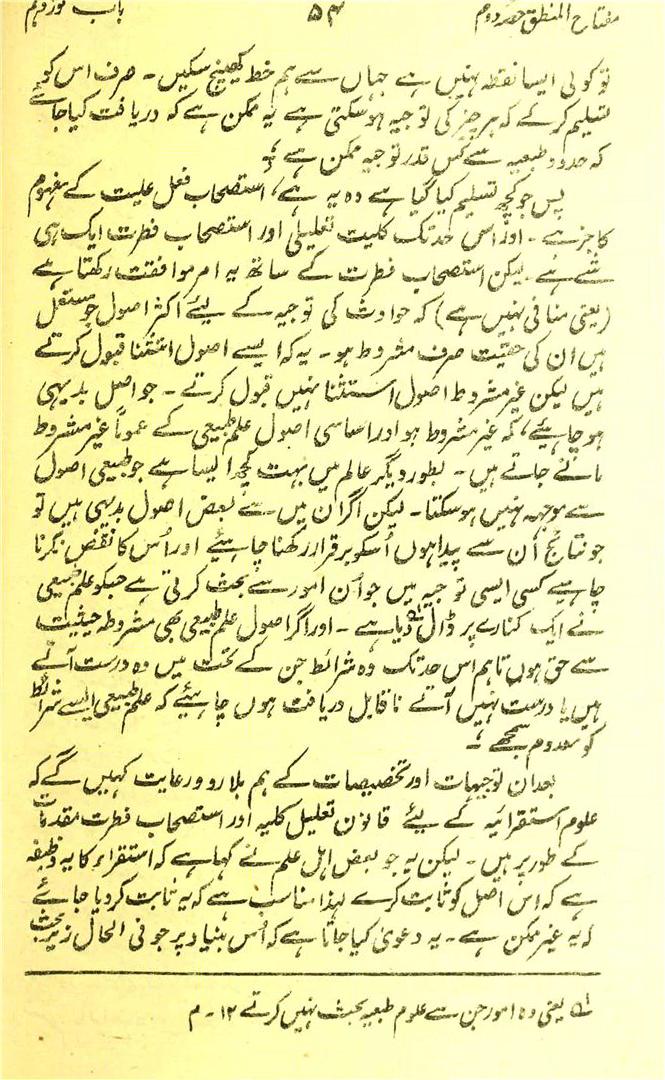 باب نوزدہم ۵۴ مفتاح المنطق حصہ دوم
تو کوئی ایسا نقطہ نہیں ہے جہاں سے ہم خط کھینچ سکیں ۔ صرف اس کو
تسلیم کر کے کہ ہر چیز کی توجیہ ہو سکتی ہے یہ ممکن ہے کہ دریافت کیا جائے
کہ حدود طبعیہ سے کس قدر توجیہ ممکن ہے ؟
پس جو کچھ تسلیم کیا گیا ہے وہ یہ ہے، استصحاب فعل علیت کے مفہوم
کا جز ہے ۔ اور اسی حد تک کلیت تعلیلی اور استصحاب فطرت ایک ہی
شے ہے لیکن استصحاب فطرت کے ساتھ یہ امر موافقت رکھتا ہے
(یعنی منافی نہیں ہے) کہ حوادث کی توجیہ کے لیے اکثر اصول جو مستقل
ہیں ان کی حقیت صرف مشروط ہو ۔ یہ کہ ایسے اصول استثنا قبول کرتے
ہیں لیکن غیر مشروط اصول استثنا نہیں قبول کرتے ۔ جو اصل بدیہی
ہو چاہیئے، کہ غیر مشروط ہو اور اساسی اصول علم طبیعی کے عموماً غیر مشروط
مانے جاتے ہیں ۔ بطور دیگر عالم میں بہت کچھ ایسا ہے جو طبیعی اصول
سے موجہ نہیں ہو سکتا ۔ لیکن اگر ان میں سے بعض اصول بدیہی ہیں تو
جو نتائج اُن سے پیدا ہوں اُسکو برقرار رکھنا چاہیئے اور اُس کا نقض نکرنا
چاہیے کسی ایسی توجیہ میں جو اُن امور سے بحث کرتی ہے جنکو علم طبیعی
نے ایک کنارے پر ڈال دیا ہے ۔ اور اگر اصول علم طبیعی بھی مشروطہ حیثیت
سے حق ہوں تاہم اس حد تک وہ شرائط جن کے تحت میں وہ درست آتے
ہیں یا درست نہیں آتے ناقابل دریافت ہوں چاہیئے کہ علم طبیعی ایسے شرائط
کو معدوم سمجھے ۔
بعد ان توجیہات اور تخصیصات کے ہم بلا رو و رعایت کہیں گے کہ
علوم استقرائیہ کے لیئے قانون تعلیل کلیہ اور استصحاب فطرت مقدمات
کے طور پر ہیں ۔ لیکن یہ جو بعض اہل علم نے کہا ہے کہ استقراء کا یہ وظیفہ
ہے کہ اس اصل کو ثابت کرے لہذا مناسب ہے کہ یہ ثابت کر دیا جائے
کہ یہ غیر ممکن ہے ۔ یہ دعوی کیا جاتا ہے کہ اُس بنیاد پر جو فی الحال زیر بحث
لہ یعنی وہ امور جن سے علوم طبعیہ بحث نہیں کرتے ۱۲ ۔ م